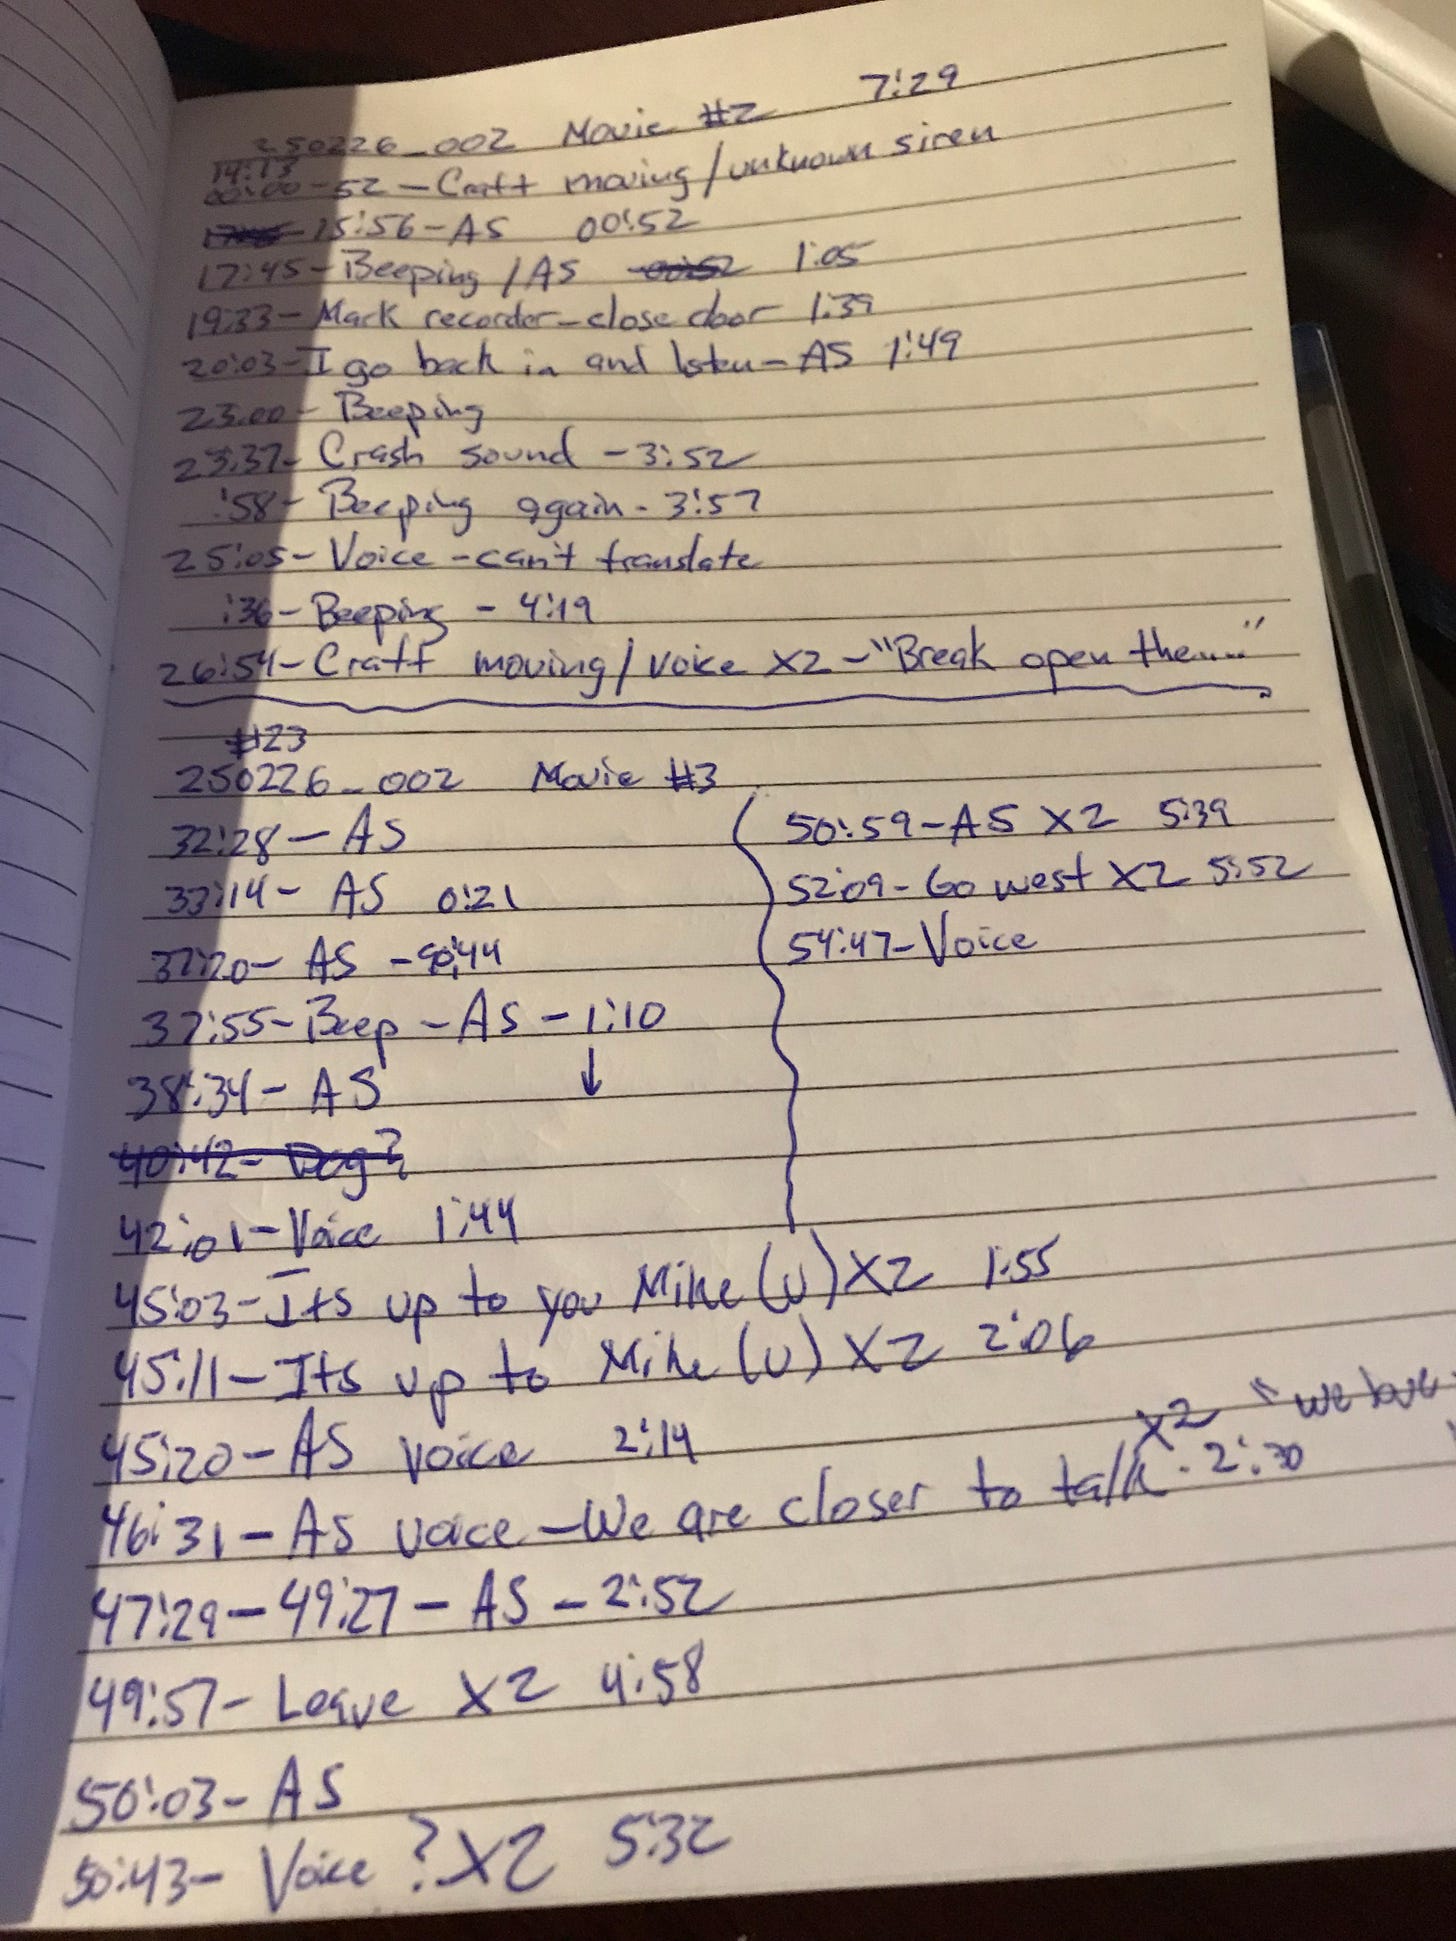 250226_002 Movie #2 7:29
14:13
00:00-52-Craft moving/unknown siren
15:56-AS 00:52
17:45-Beeping/AS 00:52 1:05
19:33-Mark recorder-close door 1:39
20:03-I go back in and listen-AS 1:49
23:00-Beeping
23:37-Crash sound-3:52
:58-Beeping again-3:57
25:05-Voice-can't translate
:36-Beeping-4:19
26:54-Craft moving/voice X2-"Break open the....."
#123
250226_002 Movie #3
32:28-AS
33:14-AS 0:21
37:20-AS-0:44
37:55-Beep-AS-1:10
↓
38:34-AS
40:42-Dog?
42:01-Voice 1:44
45:03-Its up to you Mike (U) X2 1:55
45:11-Its up to Mike (U) X2 2:06
45:20-AS voice 2:14
X2 "we
46:31-AS voice-We are closer to talk-2:30
47:29-49:27-AS-2:52
49:57-Leave X2 4:58
50:03-AS
50:43-Voice? X2 5:32
50:59-AS X2 5:39
52:09-Go west X2 5:52
54:47-Voice